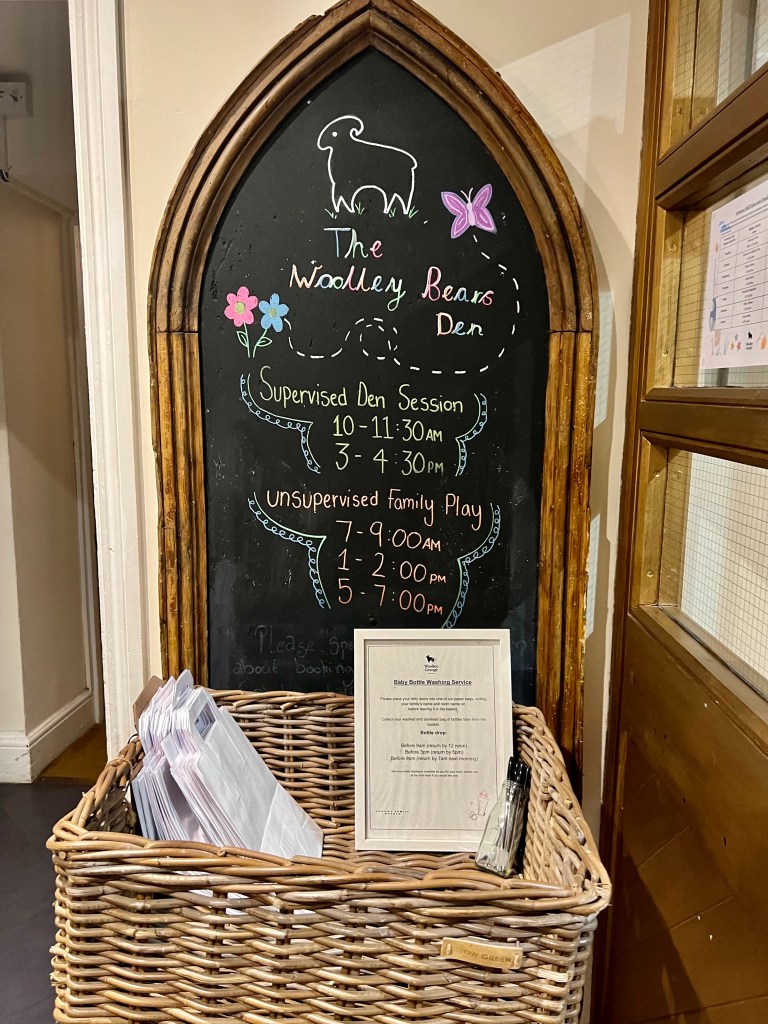 The
Woolley Bears
Den
Supervised Den Session
10 - 11:30 AM
3 - 4:30 PM
unsupervised Family Play
7 - 9:00 AM
1 - 2:00 PM
5 - 7:00 PM
"Please
about booking
Woolley
Grange
Baby Bottle Washing Service
Please place your dirty items into one of our paper bags, writing
your family's name and room name on
before leaving it in the basket.
Collect your washed and sterilised bag of bottles later from the
basket.
Bottle drop:
Before 9am (return by 12 noon)
Before 3pm (return by 5pm)
Before 8pm (return by 7am next morning)
LUXURY FAMILY
HOTELS
GREEN